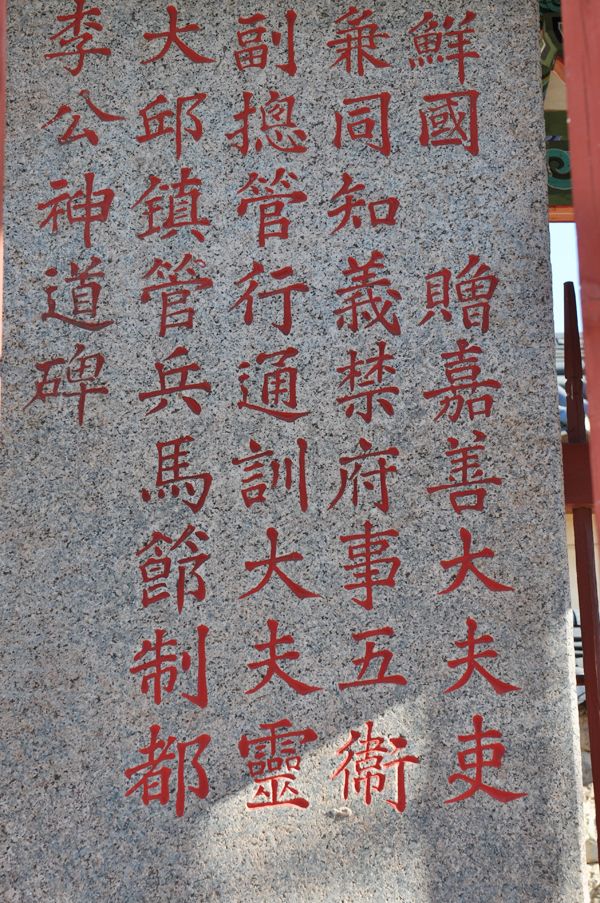 鮮國 贈嘉善大夫吏
兼同知義禁府事五衛
副摠管行通訓大夫靈
大邱鎮管兵馬節制都
李公神道碑